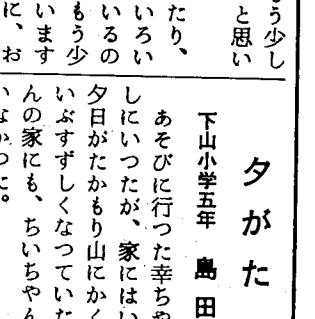 もう少し
と思い
たり、
いろい
いるの
もう少
います
に、お
夕がた
下山小学五年 島田
あそびに行つた幸ちや
しにいつたが、家にはい
夕日がたかもり山にかく
いぶすずしくなつていた
んの家にも、ちいちやん
いなかつた。